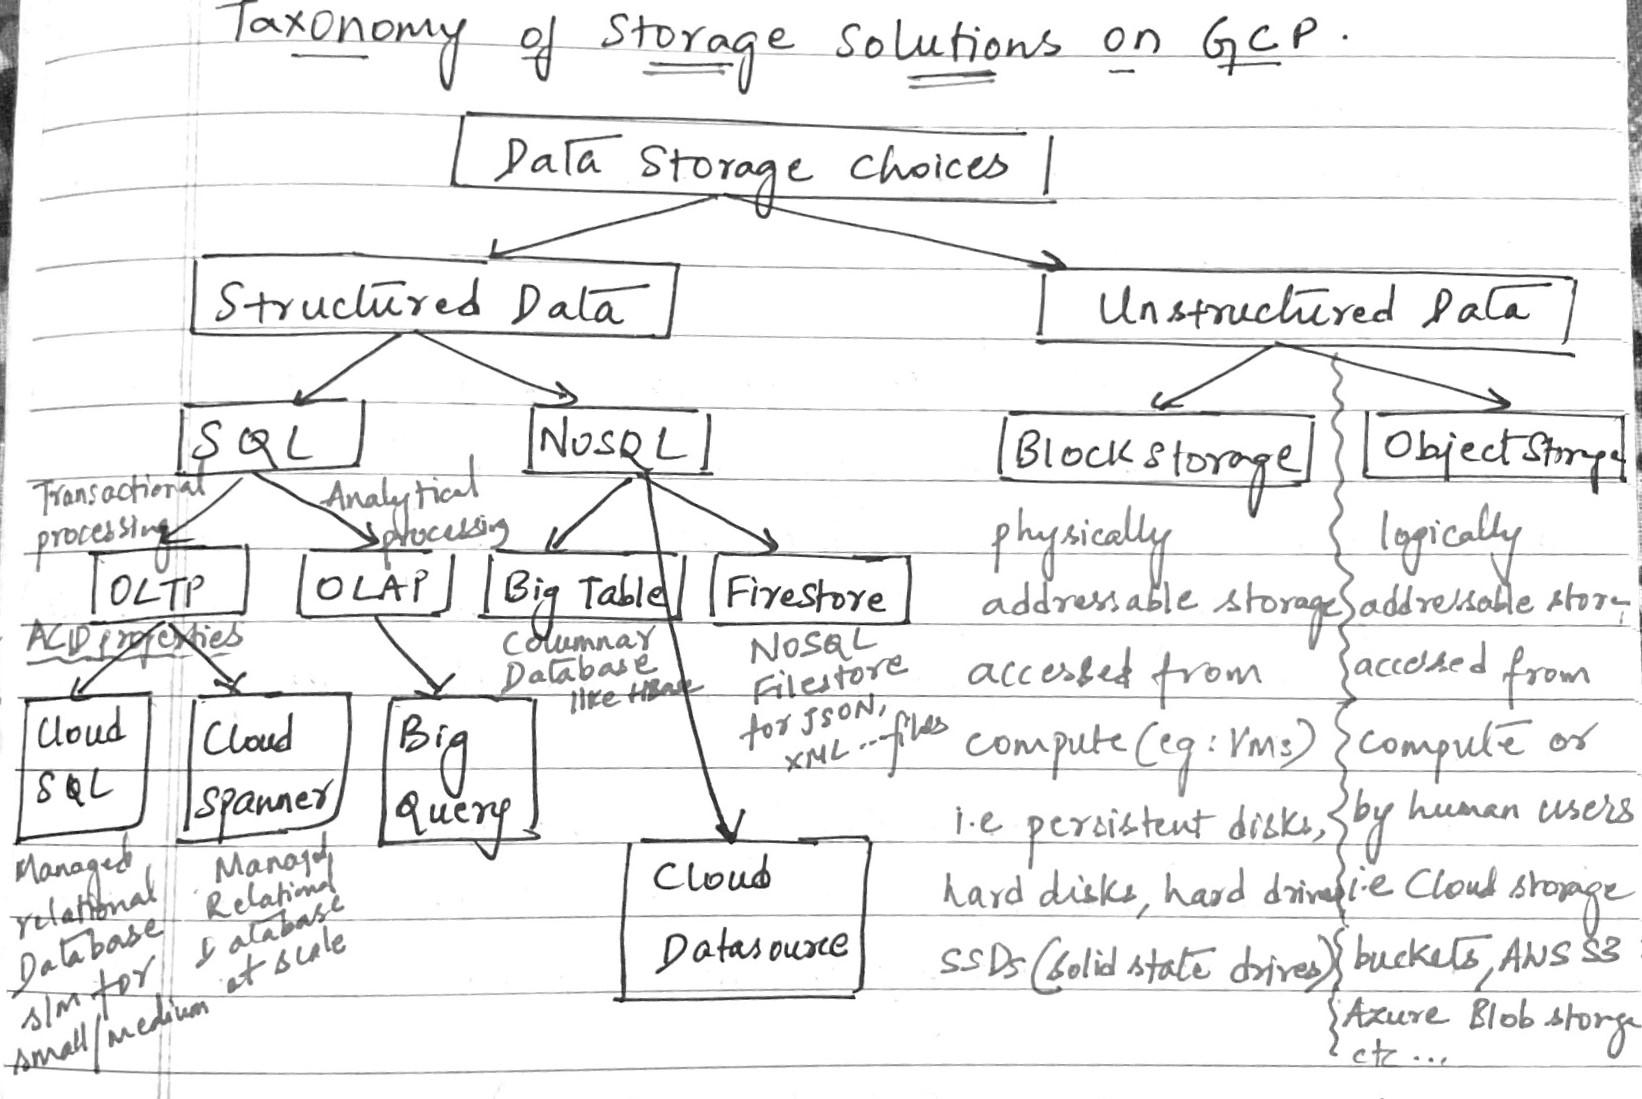 Taxonomy of Storage Solutions on GCP.
Data Storage Choices
Structured Data
Unstructured Data
SQL
NoSQL
Block Storage
Object Storage
Transactional
processing
Analytical
processing
OLTP
OLAP
Big Table
Firestore
ACID properties
Columnar
Database
like HBase
NoSQL
Filestore
for JSON,
XML ... files
Cloud
SQL
Cloud
Spanner
Big
Query
Cloud
Datasource
Managed
relational
Database
s/m for
small/medium
Managed
Relational
Database
at scale
physically
addressable storage
accessed from
compute (eg: VMs)
i.e persistent disks,
hard disks, hard drives
SSDs (solid state drives)
logically
addressable store
accessed from
compute or
by human users
i.e Cloud storage
buckets, AWS S3
Azure Blob storage
etc ...